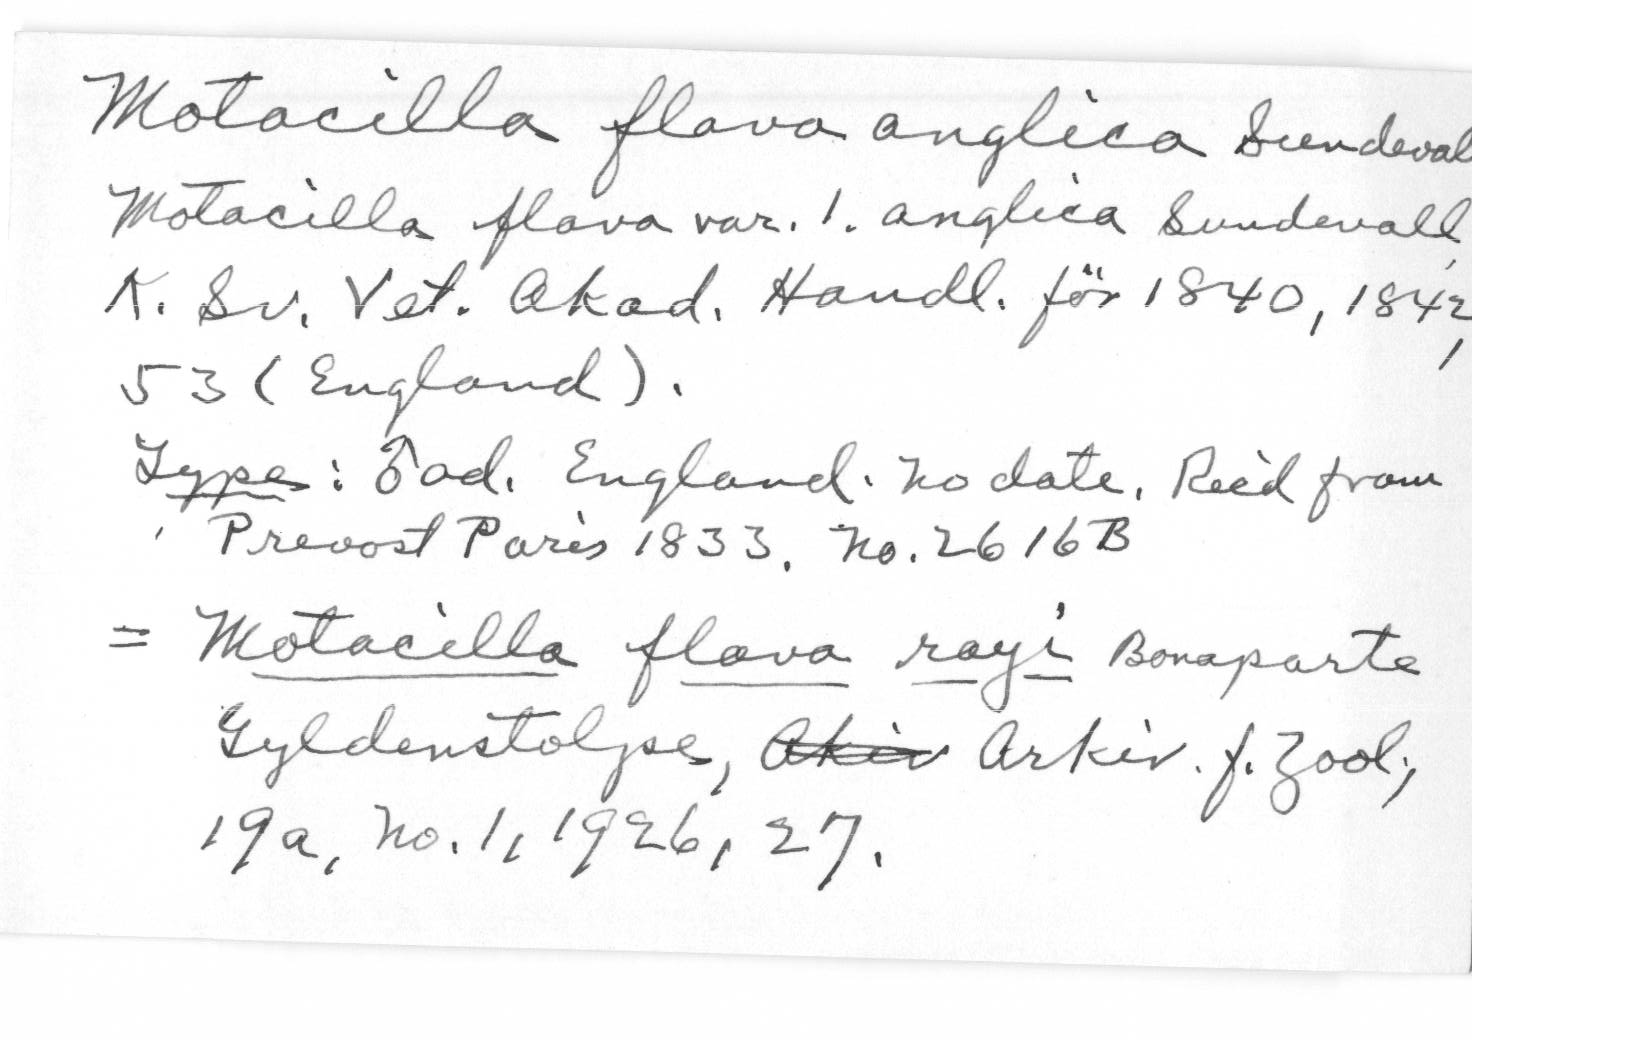 Motacilla flava anglica Sundeval
Motacilla flava var. 1. anglica Sundevall,
K. Sv. Vet. Akad. Handl. för 1840, 1842,
53 (England).
Type: ♂ ad. England. No date. Rec'd from
Prevost Paris 1833. No. 2616B
= Motacilla flava rayi Bonaparte
Gyldenstolpe, Akiv Arkiv. f. Zool.,
19a, No. 1, 1926, 27.